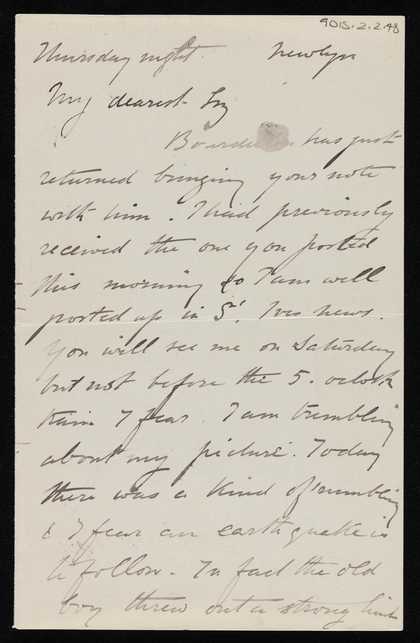 9015.2.2.48
Thursday night. Newlyn
My dearest
has just
returned bringing your note
with him. I had previously
received the one you posted
this morning so I am well
posted up in St Ives news.
You will see me on Saturday
but not before the 5. oclock
train I fear. I am trembling
about my picture. Today
there was a kind of rumbling
& I fear an earthquake is
to follow. In fact the old
boy threw out a strong hint